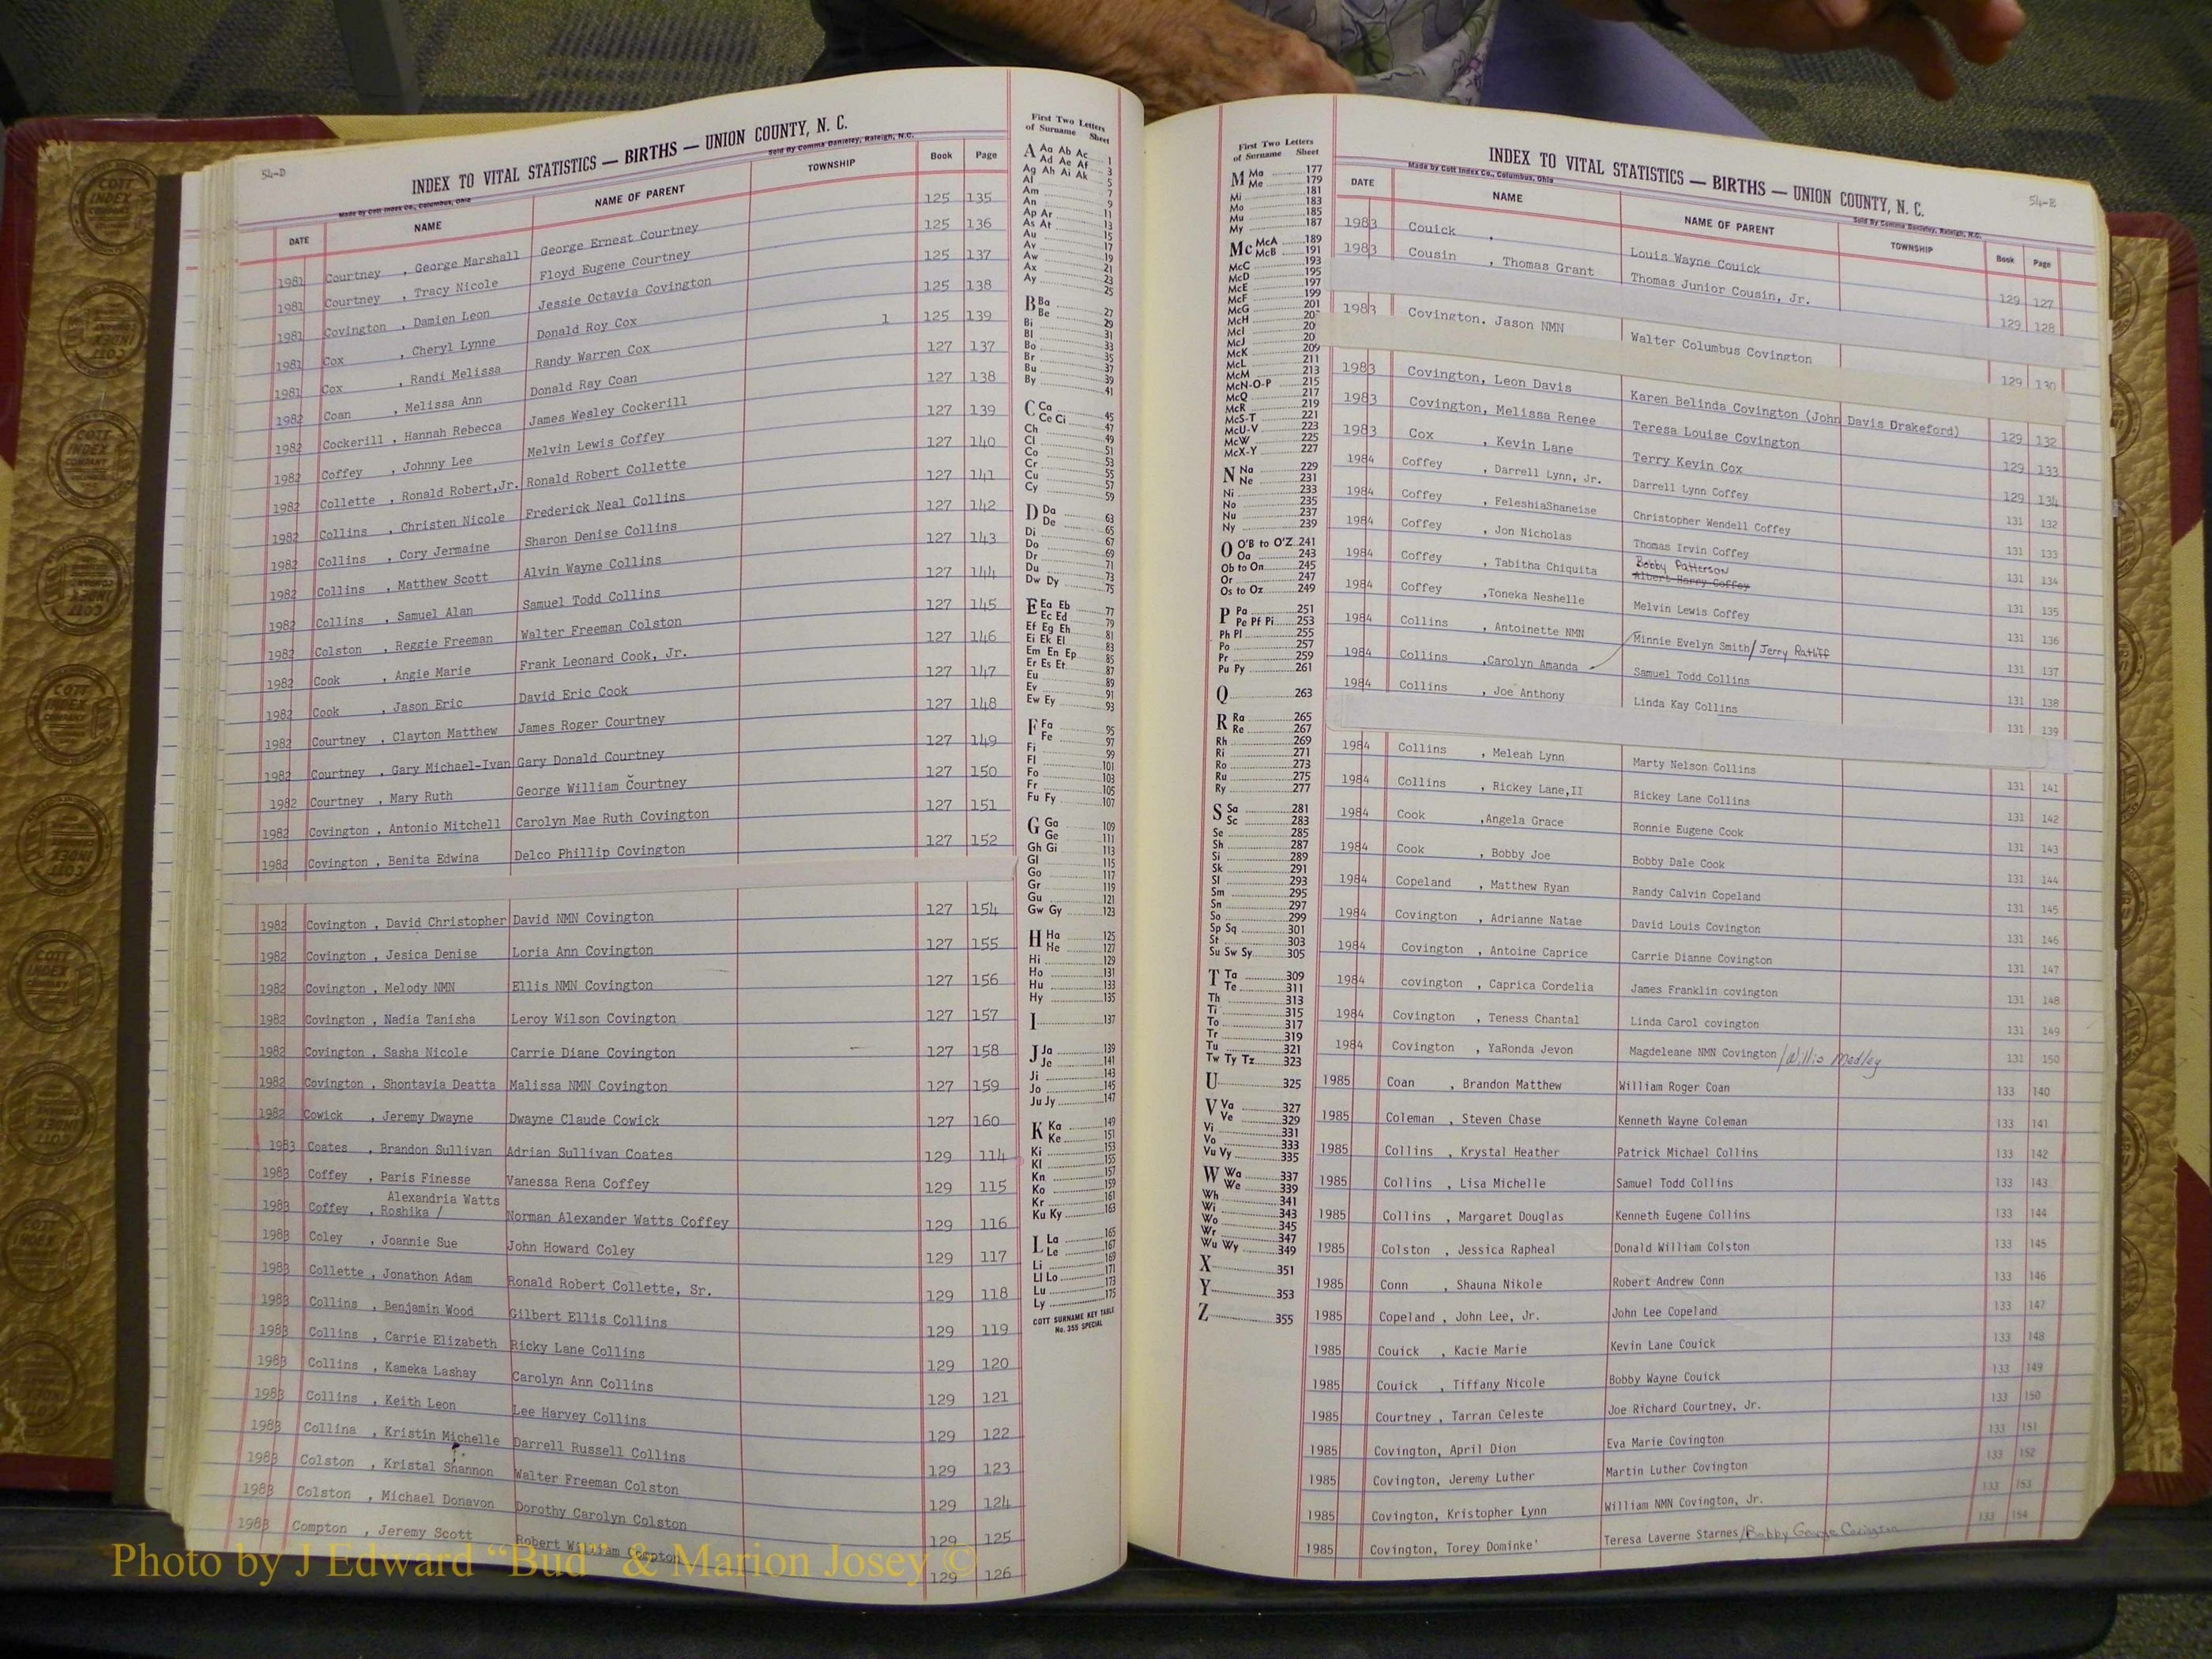 54-D
INDEX TO VITAL STATISTICS — BIRTHS — UNION COUNTY, N. C.
Made by Cott Index Co., Columbus, Ohio Sold By Comma Danieley, Raleigh, N.C.
DATE NAME NAME OF PARENT TOWNSHIP Book Page
1981 Courtney , George Marshall George Ernest Courtney 125 135
1981 Courtney , Tracy Nicole Floyd Eugene Courtney 125 136
1981 Covington , Damien Leon Jessie Octavia Covington 125 137
1981 Cox , Cheryl Lynne Donald Roy Cox 125 138
1981 Cox , Randi Melissa Randy Warren Cox 1 125 139
1982 Coan , Melissa Ann Donald Ray Coan 127 137
1982 Cockerill , Hannah Rebecca James Wesley Cockerill 127 138
1982 Coffey , Johnny Lee Melvin Lewis Coffey 127 139
1982 Collette , Ronald Robert,Jr. Ronald Robert Collette 127 140
1982 Collins , Christen Nicole Frederick Neal Collins 127 141
1982 Collins , Cory Jermaine Sharon Denise Collins 127 142
1982 Collins , Matthew Scott Alvin Wayne Collins 127 143
1982 Collins , Samuel Alan Samuel Todd Collins 127 144
1982 Colston , Reggie Freeman Walter Freeman Colston 127 145
1982 Cook , Angie Marie Frank Leonard Cook, Jr. 127 146
1982 Cook , Jason Eric David Eric Cook 127 147
1982 Courtney , Clayton Matthew James Roger Courtney 127 148
1982 Courtney , Gary Michael-Ivan Gary Donald Courtney 127 149
1982 Courtney , Mary Ruth George William Courtney 127 150
1982 Covington , Antonio Mitchell Carolyn Mae Ruth Covington 127 151
1982 Covington , Benita Edwina Delco Phillip Covington 127 152
1982 Covington , David Christopher David NMN Covington 127 154
1982 Covington , Jesica Denise Loria Ann Covington 127 155
1982 Covington , Melody NMN Ellis NMN Covington 127 156
1982 Covington , Nadia Tanisha Leroy Wilson Covington 127 157
1982 Covington , Sasha Nicole Carrie Diane Covington 127 158
1982 Covington , Shontavia Deatta Malissa NMN Covington 127 159
1982 Cowick , Jeremy Dwayne Dwayne Claude Cowick 127 160
1983 Coates , Brandon Sullivan Adrian Sullivan Coates 129 114
1983 Coffey , Paris Finesse Vanessa Rena Coffey 129 115
Alexandria Watts
1983 Coffey , Roshika / Norman Alexander Watts Coffey 129 116
1983 Coley , Joannie Sue John Howard Coley 129 117
1983 Collette , Jonathon Adam Ronald Robert Collette, Sr. 129 118
1983 Collins , Benjamin Wood Gilbert Ellis Collins 129 119
1983 Collins , Carrie Elizabeth Ricky Lane Collins 129 120
1983 Collins , Kameka Lashay Carolyn Ann Collins 129 121
1983 Collins , Keith Leon Lee Harvey Collins 129 122
1983 Collina , Kristin Michelle Darrell Russell Collins 129 123
1983 Colston , Kristal Shannon Walter Freeman Colston 129 124
1983 Colston , Michael Donavon Dorothy Carolyn Colston 129 125
1983 Compton , Jeremy Scott Robert William Compton 129 126
First Two Letters
of Surname Sheet
A Aa Ab Ac 1
Ad Ae Af 3
Ag Ah Ai Ak 5
Al 7
Am 9
An 11
Ap Ar 13
As At 15
Au 17
Av 19
Aw 21
Ax 23
Ay 25
B Ba 27
Be 29
Bi 31
Bl 33
Bo 35
Br 37
Bu 39
By 41
C Ca 45
Ce Ci 47
Ch 49
Cl 51
Co 53
Cr 55
Cu 57
Cy 59
D Da 63
De 65
Di 67
Do 69
Dr 71
Du 73
Dw Dy 75
E Ea Eb 77
Ec Ed 79
Ef Eg Eh 81
Ei Ek El 83
Em En Ep 85
Er Es Et 87
Eu 89
Ev 91
Ew Ey 93
F Fa 95
Fe 97
Fi 99
Fl 101
Fo 103
Fr 105
Fu Fy 107
G Ga 109
Ge 111
Gh Gi 113
Gl 115
Go 117
Gr 119
Gu 121
Gw Gy 123
H Ha 125
He 127
Hi 129
Ho 131
Hu 133
Hy 135
I 137
J Ja 139
Je 141
Ji 143
Jo 145
Ju Jy 147
K Ka 149
Ke 151
Ki 153
Kl 155
Kn 157
Ko 159
Kr 161
Ku Ky 163
L La 165
Le 167
Li 169
Ll Lo 171
Lu 173
Ly 175
COTT SURNAME KEY TABLE
No. 355 SPECIAL
First Two Letters
of Surname Sheet
M Ma 177
Me 179
Mi 181
Mo 183
Mu 185
My 187
Mc McA 189
McB 191
McC 193
McD 195
McE 197
McF 199
McG 201
McH
McI
McJ
McK 209
McL 211
McM 213
McN-O-P 215
McQ 217
McR 219
McS-T 221
McU-V 223
McW 225
McX-Y 227
N Na 229
Ne 231
Ni 233
No 235
Nu 237
Ny 239
O O'B to O'Z 241
Oa 243
Ob to On 245
Or 247
Os to Oz 249
P Pa 251
Pe Pf Pi 253
Ph Pl 255
Po 257
Pr 259
Pu Py 261
Q 263
R Ra 265
Re 267
Rh 269
Ri 271
Ro 273
Ru 275
Ry 277
S Sa 281
Sc 283
Se 285
Sh 287
Si 289
Sk 291
Sl 293
Sm 295
Sn 297
So 299
Sp Sq 301
St 303
Su Sw Sy 305
T Ta 309
Te 311
Th 313
Ti 315
To 317
Tr 319
Tu 321
Tw Ty Tz 323
U 325
V Va 327
Ve 329
Vi 331
Vo 333
Vu Vy 335
W Wa 337
We 339
Wh 341
Wi 343
Wo 345
Wr 347
Wu Wy 349
X 351
Y 353
Z 355
54-E
INDEX TO VITAL STATISTICS — BIRTHS — UNION COUNTY, N. C.
Made by Cott Index Co., Columbus, Ohio Sold By Comma Danieley, Raleigh, N.C.
DATE NAME NAME OF PARENT TOWNSHIP Book Page
1983 Couick , Louis Wayne Couick 129 127
1983 Cousin , Thomas Grant Thomas Junior Cousin, Jr. 129 128
1983 Covington. Jason NMN Walter Columbus Covington 129 130
1983 Covington, Leon Davis Karen Belinda Covington (John Davis Drakeford) 129 132
1983 Covington, Melissa Renee Teresa Louise Covington 129 133
1983 Cox , Kevin Lane Terry Kevin Cox 129 134
1984 Coffey , Darrell Lynn, Jr. Darrell Lynn Coffey 131 132
1984 Coffey , FeleshiaShaneise Christopher Wendell Coffey 131 133
1984 Coffey , Jon Nicholas Thomas Irvin Coffey 131 134
Bobby Patterson
1984 Coffey , Tabitha Chiquita Albert Harry Coffey 131 135
1984 Coffey ,Toneka Neshelle Melvin Lewis Coffey 131 136
1984 Collins , Antoinette NMN Minnie Evelyn Smith/ Jerry Ratliff 131 137
1984 Collins ,Carolyn Amanda Samuel Todd Collins 131 138
1984 Collins , Joe Anthony Linda Kay Collins 131 139
1984 Collins , Meleah Lynn Marty Nelson Collins 131 141
1984 Collins , Rickey Lane,II Rickey Lane Collins 131 142
1984 Cook ,Angela Grace Ronnie Eugene Cook 131 143
1984 Cook , Bobby Joe Bobby Dale Cook 131 144
1984 Copeland , Matthew Ryan Randy Calvin Copeland 131 145
1984 Covington , Adrianne Natae David Louis Covington 131 146
1984 Covington , Antoine Caprice Carrie Dianne Covington 131 147
1984 covington , Caprica Cordelia James Franklin covington 131 148
1984 Covington , Teness Chantal Linda Carol covington 131 149
1984 Covington , YaRonda Jevon Magdeleane NMN Covington /Willie Medley 131 150
1985 Coan , Brandon Matthew William Roger Coan 133 140
1985 Coleman , Steven Chase Kenneth Wayne Coleman 133 141
1985 Collins , Krystal Heather Patrick Michael Collins 133 142
1985 Collins , Lisa Michelle Samuel Todd Collins 133 143
1985 Collins , Margaret Douglas Kenneth Eugene Collins 133 144
1985 Colston , Jessica Rapheal Donald William Colston 133 145
1985 Conn , Shauna Nikole Robert Andrew Conn 133 146
1985 Copeland , John Lee, Jr. John Lee Copeland 133 147
1985 Couick , Kacie Marie Kevin Lane Couick 133 148
1985 Couick , Tiffany Nicole Bobby Wayne Couick 133 149
1985 Courtney , Tarran Celeste Joe Richard Courtney, Jr. 133 150
1985 Covington, April Dion Eva Marie Covington 133 151
1985 Covington, Jeremy Luther Martin Luther Covington 133 152
1985 Covington, Kristopher Lynn William NMN Covington, Jr. 133 153
1985 Covington, Torey Dominke' Teresa Laverne Starnes/Bobby George Covington 133 154
Photo by J Edward "Bud" & Marion Josey ©
COTT
INDEX
COMPANY